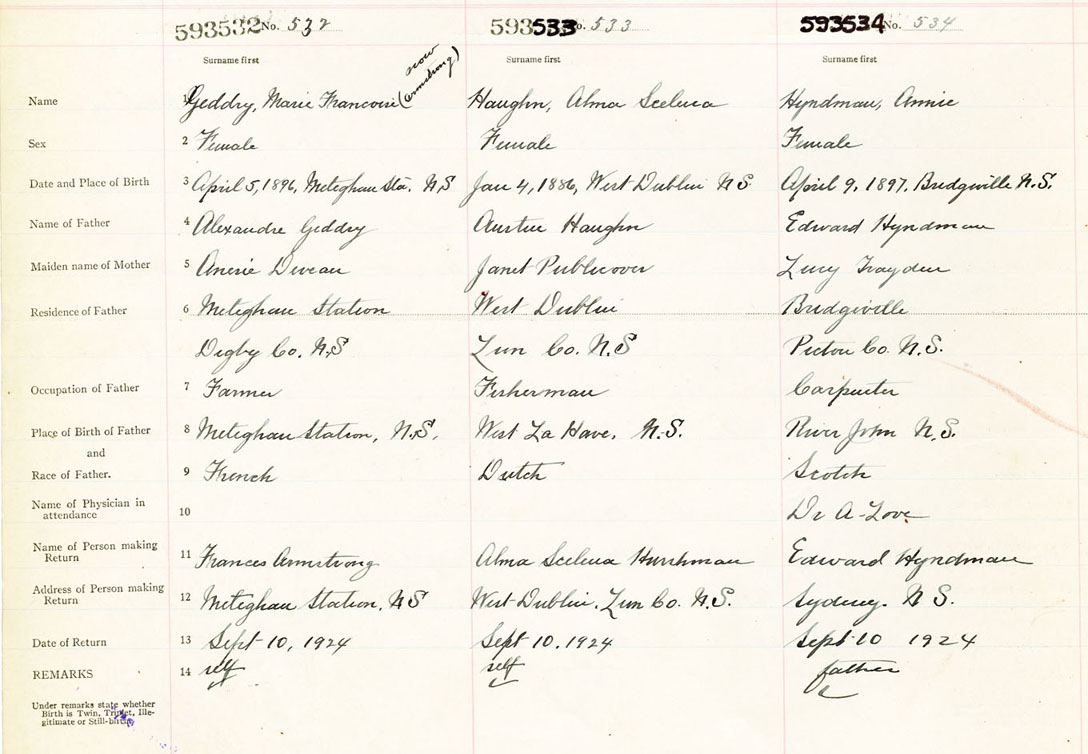 593532 No. 532 593533 No. 533 593534 No. 534
Surname first Surname first Surname first
(now Armstrong)
Name 1 Geddry, Marie Francoise Haughn, Alma Hyndman, Annie
Sex 2 Female Female Female
Date and Place of Birth 3 April 5, 1896, Meteghan Sta. N.S Jan 4, 1886, West Dublin N.S. April 9, 1897. Bridgiville N.S.
Name of Father 4 Alexandre Geddry Austin Haughn Edward Hyndman
Maiden name of Mother 5 Deveau Janet Publicover Lucy
Residence of Father 6 Meteghan Station West Dublin Bridgiville
Digby Co. N.S Lun Co. N.S Pictou Co. N.S.
Occupation of Father 7 Farmer Fisherman Carpenter
Place of Birth of Father 8 Meteghan Station, N.S. West La Have, N.S. River John N.S.
and
Race of Father. 9 French Dutch Scotch
Name of Physician in
attendance 10 Dr A. Love
Name of Person making
Return 11 Frances Armstrong Alma Edward Hyndman
Address of Person making
Return 12 Meteghan Station, N.S West Dublin, Lun Co. N.S. Sydney. N.S.
Date of Return 13 Sept 10, 1924 Sept 10, 1924 Sept 10 1924
REMARKS 14 self self father
Under remarks state whether
Birth is Twin, Triplet, Ille-
gitimate or Still-birth.